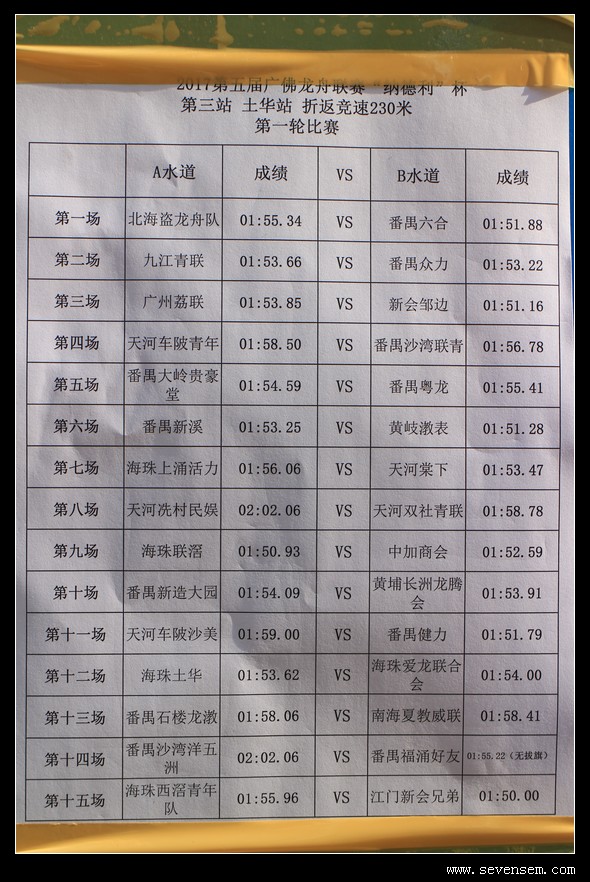 2017第五届广佛龙舟联赛“纳德利”杯
第三站 土华站 折返竞速230米
第一轮比赛
A水道 成绩 VS B水道 成绩
第一场 北海盗龙舟队 01:55.34 VS 番禺六合 01:51.88
第二场 九江青联 01:53.66 VS 番禺众力 01:53.22
第三场 广州荔联 01:53.85 VS 新会邹边 01:51.16
第四场 天河车陂青年 01:58.50 VS 番禺沙湾联青 01:56.78
第五场 番禺大岭贵豪堂 01:54.59 VS 番禺粤龙 01:55.41
第六场 番禺新溪 01:53.25 VS 黄岐漖表 01:51.28
第七场 海珠上涌活力 01:56.06 VS 天河棠下 01:53.47
第八场 天河冼村民娱 02:02.06 VS 天河双社青联 01:58.78
第九场 海珠联滘 01:50.93 VS 中加商会 01:52.59
第十场 番禺新造大园 01:54.09 VS 黄埔长洲龙腾会 01:53.91
第十一场 天河车陂沙美 01:59.00 VS 番禺健力 01:51.79
第十二场 海珠土华 01:53.62 VS 海珠爱龙联合会 01:54.00
第十三场 番禺石楼龙漖 01:58.06 VS 南海夏教威联 01:58.41
第十四场 番禺沙湾洋五洲 02:02.06 VS 番禺福涌好友 01:55.22（无拔旗）
第十五场 海珠西滘青年队 01:55.96 VS 江门新会兄弟 01:50.00
www.sevensem.com